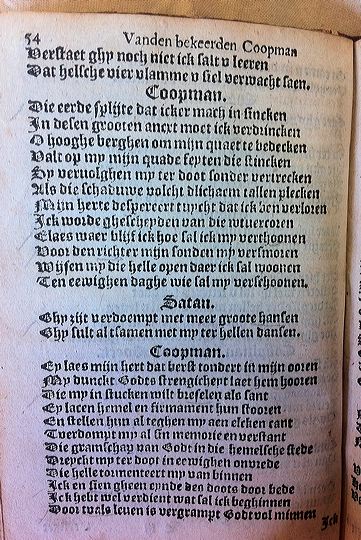 54 Vanden bekeerden Coopman
Verstaet ghy noch niet ick salt v leeren
Dat helsche vier vlamme v siel verwacht saen.
Coopman.
Die eerde splijte dat icker mach in sincken
In desen grooten ancxt moet ick verdrincken
O hooghe berghen om mijn quaet te bedecken
Valt op my mijn quade feyten die stincken
Sy vervolghen my ter doot sonder vertrecken
Als die schaduwe volcht dlichaem tallen plecken
Mijn herte despereert tuycht dat ick ben verloren
Ick worde ghescheyden van die wtuercoren
Elaes waer blijf ick hoe sal ick my verthoonen
Voor den richter mijn sonden my versmoren
Wijsen my die helle open daer ick sal woonen
Ten eewighen daghe wie sal my verschoonen.
Satan.
Ghy zijt verdoempt met meer groote hansen
Ghy sult al tsamen met my ter hellen dansen.
Coopman.
Ey laes mijn hert dat berst tondert in mijn ooren
My dunckt Godts strengicheyt laet hem hooren
Die my in stucken wilt breselen als sant
Ey lacen hemel ern firmament hun stooren
En stellen hun al teghen my aen elcken cant
Tverdompt my al sin memorie en verstant
Die gramschap van Godt in die hemelsche stede
Dreycht my ter doot in eewighen onvrede
Die helle tornenteert my van binnen
Ick en sien gheen eynde des doots door bede
Ick hebt wel verdient wat sal ick beghinnen
Door twals leuen is vergrampt Godt vol minnen
Ick